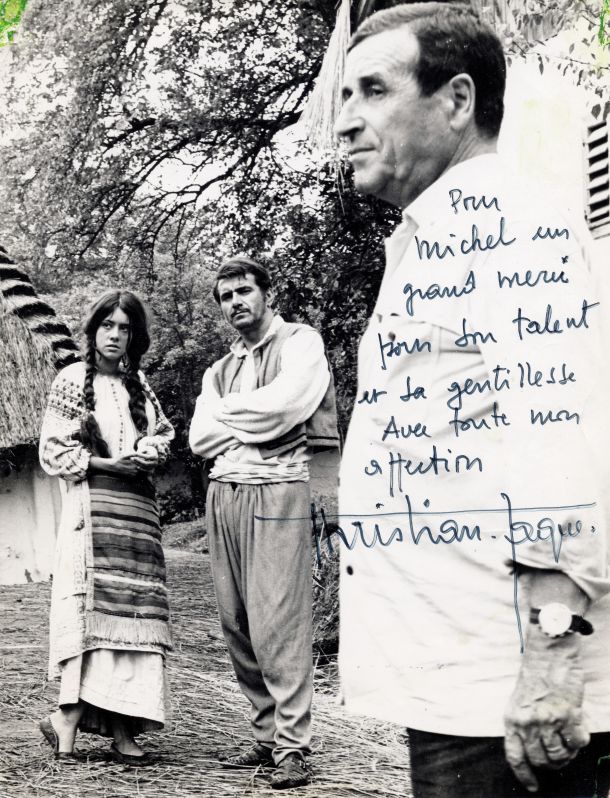 Pour
Michel un
grand merci
pour son talent
et sa gentillesse
Avec toute mon
affection
Christian-Jaque.